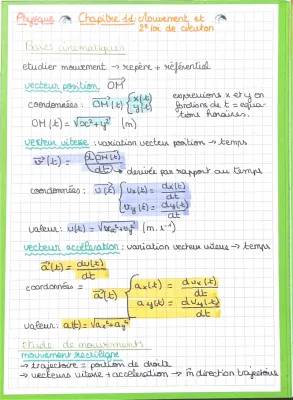 Physique Chapitre 11 Mouvement et
2e loi de Newton
Bases cinématiques
etudier mouvement → repère + référentiel
vecteur position OM
coordonnées : OM(t) { x(t) y(t)
expressions x et y en
fonctions de t = équa
tions horaires.
OM(t) = √x²+y² (m)
vecteur vitesse : variation vecteur position → temps
v(t) = dOM(t)/dt
→ dérivée par rapport au temps
coordonnées : v(t) { vx(t) = dx(t)/dt
vy(t) = dy(t)/dt
valeur : v(t) = √vx²+vy² (m.s⁻¹)
vecteur accélération : variation vecteur vitesse → temps
a(t) = dv(t)/dt
coordonnées = a(t) { ax(t) = dvx(t)/dt
ay(t) = dvy(t)/dt
valeur : a(t) = √ax²+ay²
étude de mouvements
mouvement rectiligne
→ trajectoire = portion de droite
→ vecteurs vitesse + accélération → m direction trajectoire